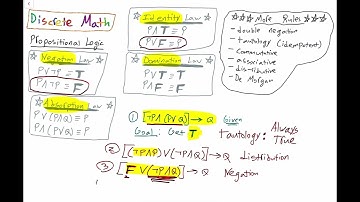 Discrete Math
Propositional Logic
Negation Law
P∨¬P ≡ T
P∧¬P ≡ F
Absorption Law
P∨(P∧Q) ≡ P
P∧(P∨Q) ≡ P
Identity Law
P∧T ≡ P
P∨F ≡ P
Domination Law
P∨T ≡ T
P∧F ≡ F
More Rules
- double negation
- tautology (idempotent)
- Commutative
- associative
- distributive
- De Morgan
① [¬P∧(P∨Q)] → Q Given
Goal: Get T tautology: Always True
② [(¬P∧P)∨(¬P∧Q)] → Q Distribution
③ [F∨(¬P∧Q)] → Q Negation